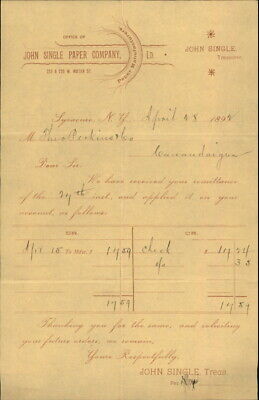 OFFICE OF
JOHN SINGLE PAPER COMPANY, LD.
JOHN SINGLE,
Treasurer.
Syracuse, N. Y. April 28 189
M Theo Perkins & Co
Canandaigua
Dear Sir:
We have received your remittance
of the 27th inst. and applied it on your
account, as follows:
DR. CR.
Apr 15 To Mdse 17 59 Check 17 24
35
17 59 17 59
Thanking you for the same, and soliciting
your future orders, we remain,
Yours Respectfully,
JOHN SINGLE, Treas.
Per